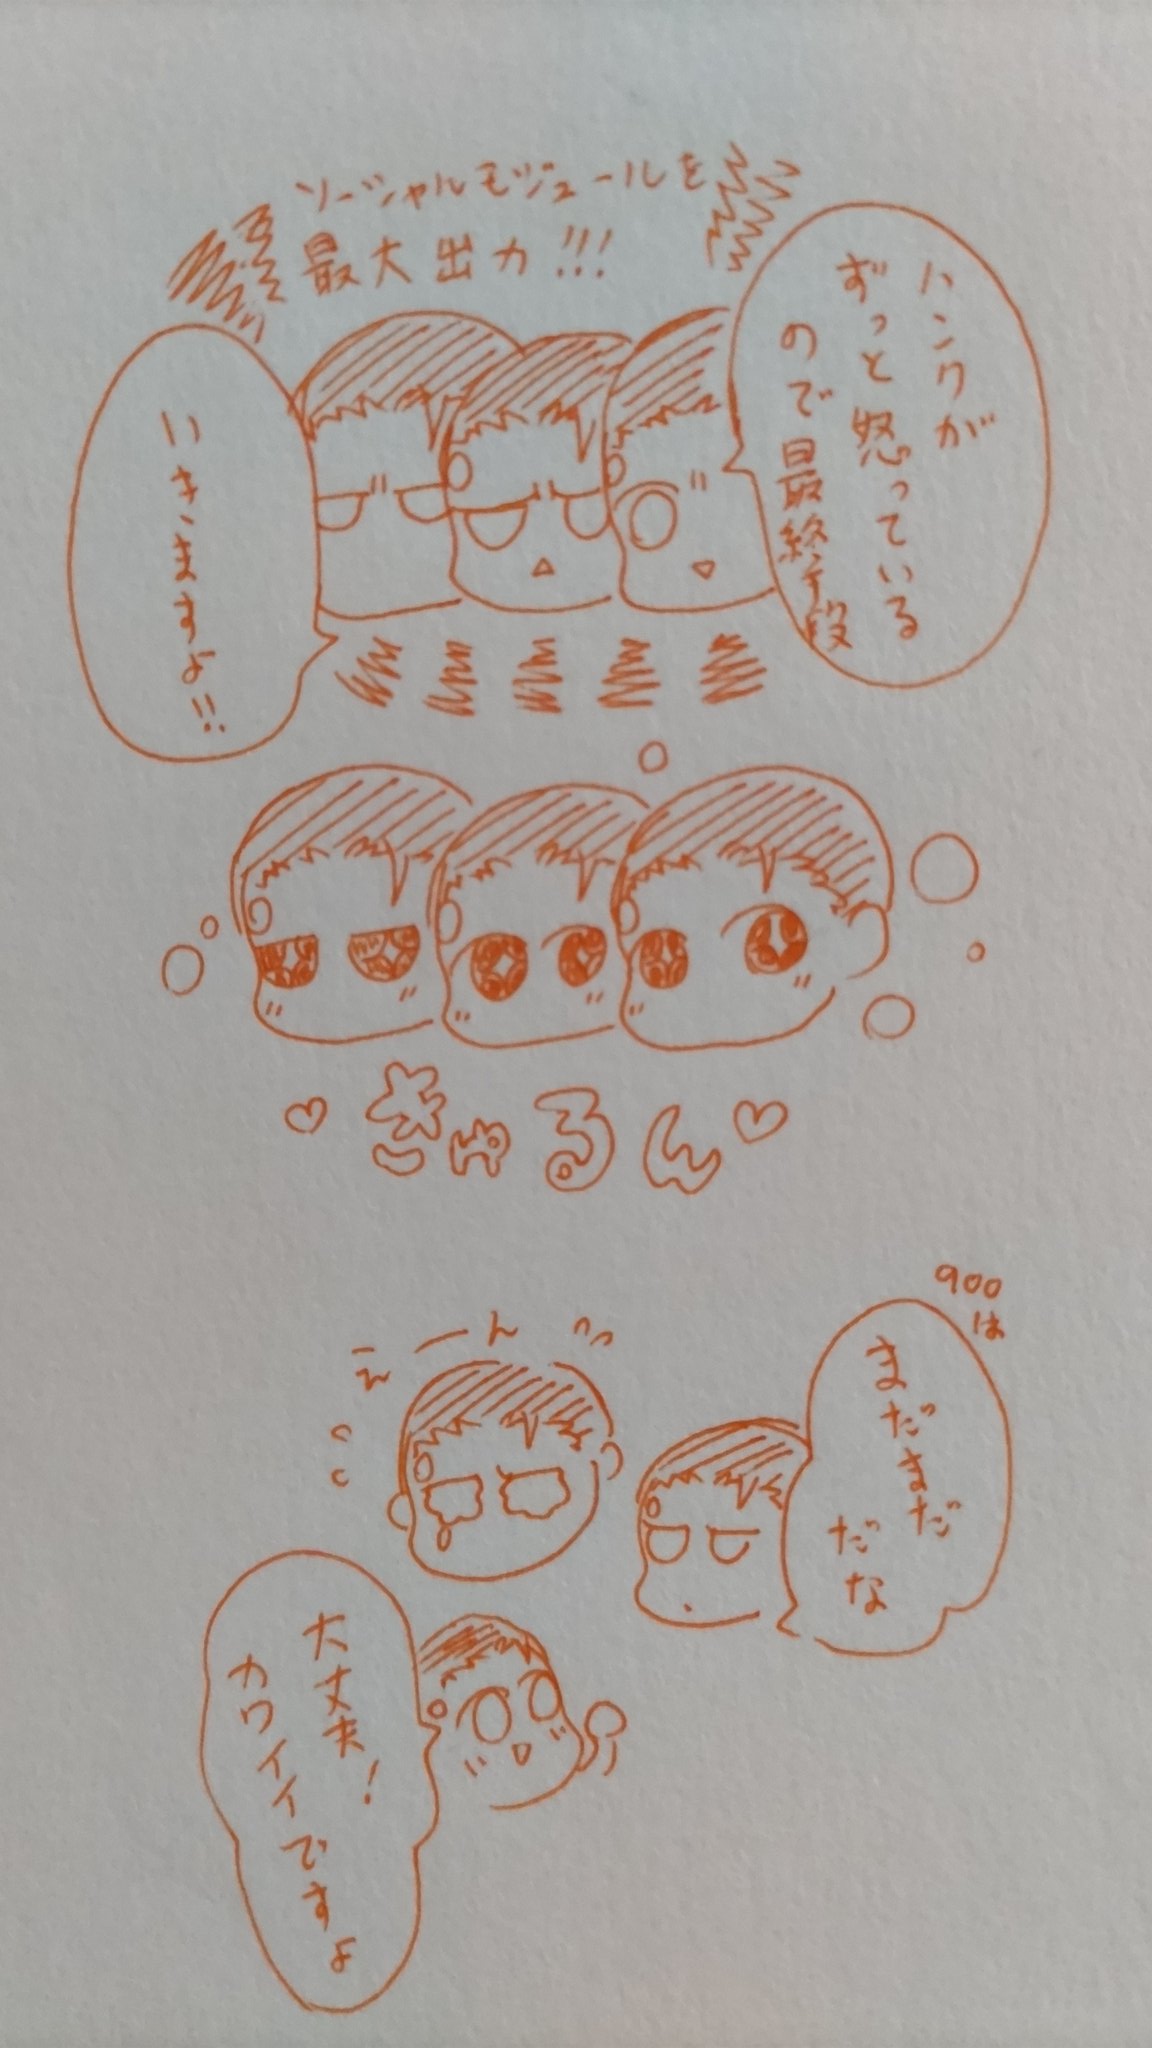 ソーシャルモジュールを
最大出力!!!
ハンクが
ずっと怒っている
ので最終手段
いきますよ!!
♡きゅるん♡
900
は
まだまだ
だな
えーん
大丈夫!
カワイイですよ